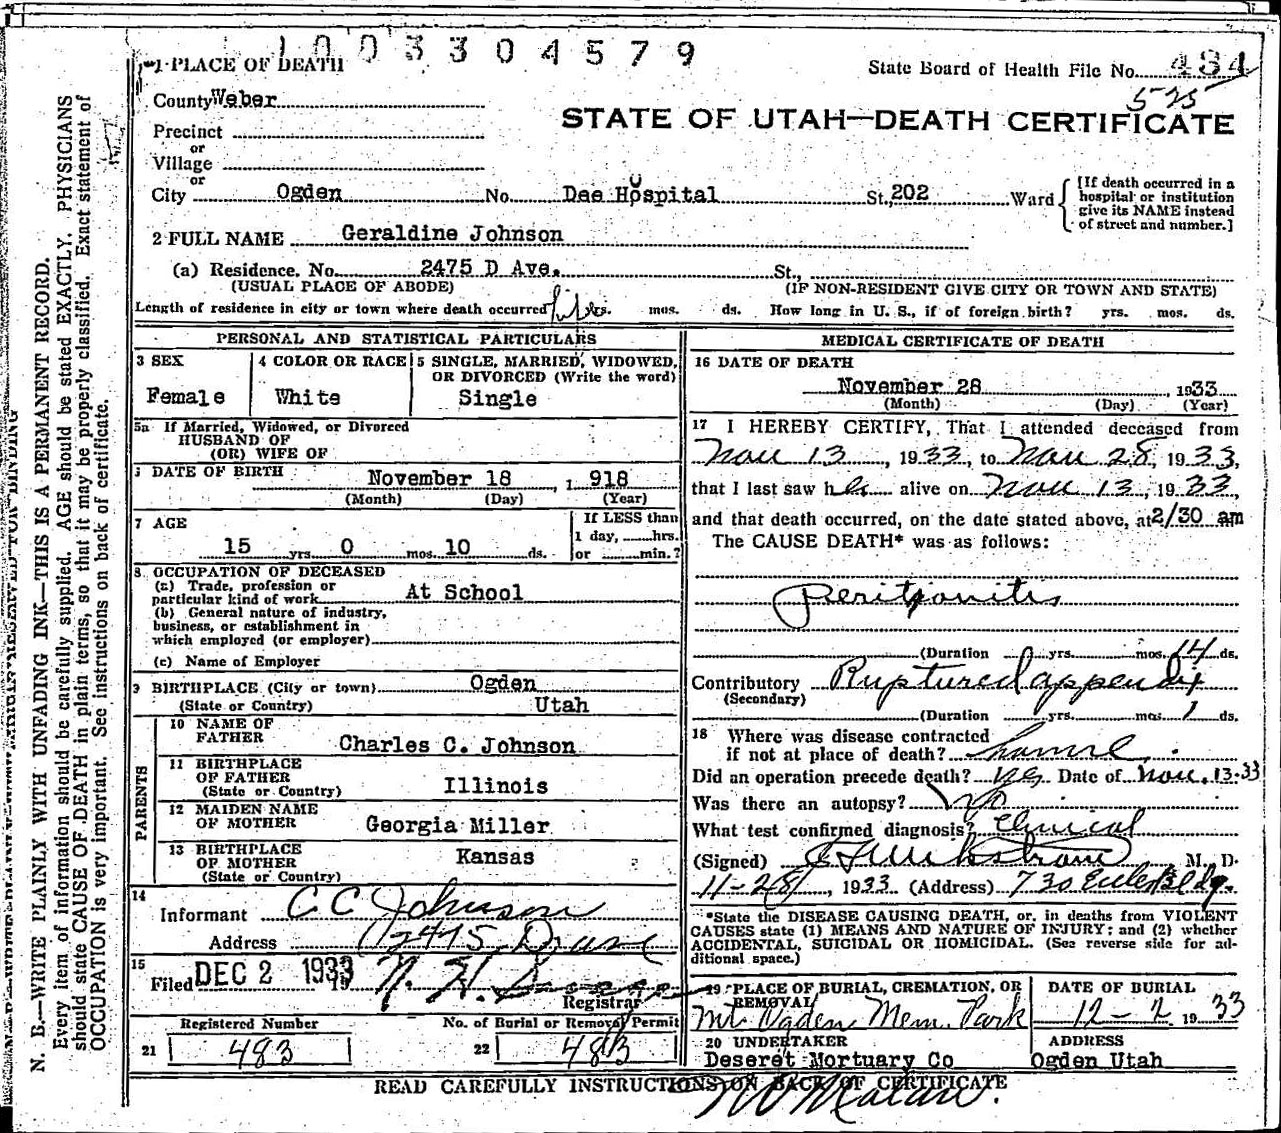 1003304579
1 PLACE OF DEATH
State Board of Health File No. 484
525
County Weber
STATE OF UTAH—DEATH CERTIFICATE
Precinct
or
Village
or
City Ogden No. Dee Hospital St. 202 Ward
[If death occurred in a
hospital or institution
give its NAME instead
of street and number.]
2 FULL NAME Geraldine Johnson
(a) Residence. No. 2475 D Ave. St.,
(USUAL PLACE OF ABODE) (IF NON-RESIDENT GIVE CITY OR TOWN AND STATE)
Length of residence in city or town where death occurred life yrs. mos. ds. How long in U. S., if of foreign birth? yrs. mos. ds.
PERSONAL AND STATISTICAL PARTICULARS
3 SEX
Female
4 COLOR OR RACE
White
5 SINGLE, MARRIED, WIDOWED,
OR DIVORCED (Write the word)
Single
5a If Married, Widowed, or Divorced
HUSBAND OF
(OR) WIFE OF
DATE OF BIRTH November 18, 1918
(Month) (Day) (Year)
7 AGE
15 yrs. 0 mos. 10 ds.
If LESS than
1 day, hrs.
or min.?
8 OCCUPATION OF DECEASED
(a) Trade, profession or
particular kind of work At School
(b) General nature of industry,
business, or establishment in
which employed (or employer)
(c) Name of Employer
9 BIRTHPLACE (City or town) Ogden
(State or Country) Utah
PARENTS
10 NAME OF
FATHER Charles C. Johnson
11 BIRTHPLACE
OF FATHER Illinois
(State or Country)
12 MAIDEN NAME
OF MOTHER Georgia Miller
13 BIRTHPLACE
OF MOTHER Kansas
(State or Country)
14
Informant C C Johnson
Address 2475 D Ave
15
Filed DEC 2 1933 N. H.
Registrar
Registered Number
21 483
No. of Burial or Removal Permit
22 483
MEDICAL CERTIFICATE OF DEATH
16 DATE OF DEATH
November 28, 1933
(Month) (Day) (Year)
17 I HEREBY CERTIFY, That I attended deceased from
Nov 13, 1933, to Nov 28, 1933,
that I last saw her alive on Nov 13, 1933,
and that death occurred, on the date stated above, at 2/30 am
The CAUSE DEATH* was as follows:
Peritonitis
(Duration yrs. mos. 14 ds.
Contributory Ruptured appendix
(Secondary)
(Duration yrs. mos. 1 ds.
18 Where was disease contracted
if not at place of death? home
Did an operation precede death? yes Date of Nov. 13-33
Was there an autopsy? No
What test confirmed diagnosis? Clinical
(Signed) M. D.
11-28, 1933 (Address) 730 Eccles Bldg.
*State the DISEASE CAUSING DEATH, or, in deaths from VIOLENT
CAUSES state (1) MEANS AND NATURE OF INJURY: and (2) whether
ACCIDENTAL, SUICIDAL OR HOMICIDAL. (See reverse side for ad-
ditional space.)
19 PLACE OF BURIAL, CREMATION, OR
REMOVAL
Mt. Ogden Mem. Park
DATE OF BURIAL
12-2 1933
20 UNDERTAKER
Deseret Mortuary Co
ADDRESS
Ogden Utah
READ CAREFULLY INSTRUCTIONS ON BACK OF CERTIFICATE
N. B.—WRITE PLAINLY WITH UNFADING INK—THIS IS A PERMANENT RECORD.
Every item of information should be carefully supplied. AGE should be stated EXACTLY. PHYSICIANS
should state CAUSE OF DEATH in plain terms, so that it may be properly classified. Exact statement of
OCCUPATION is very important. See instructions on back of certificate.